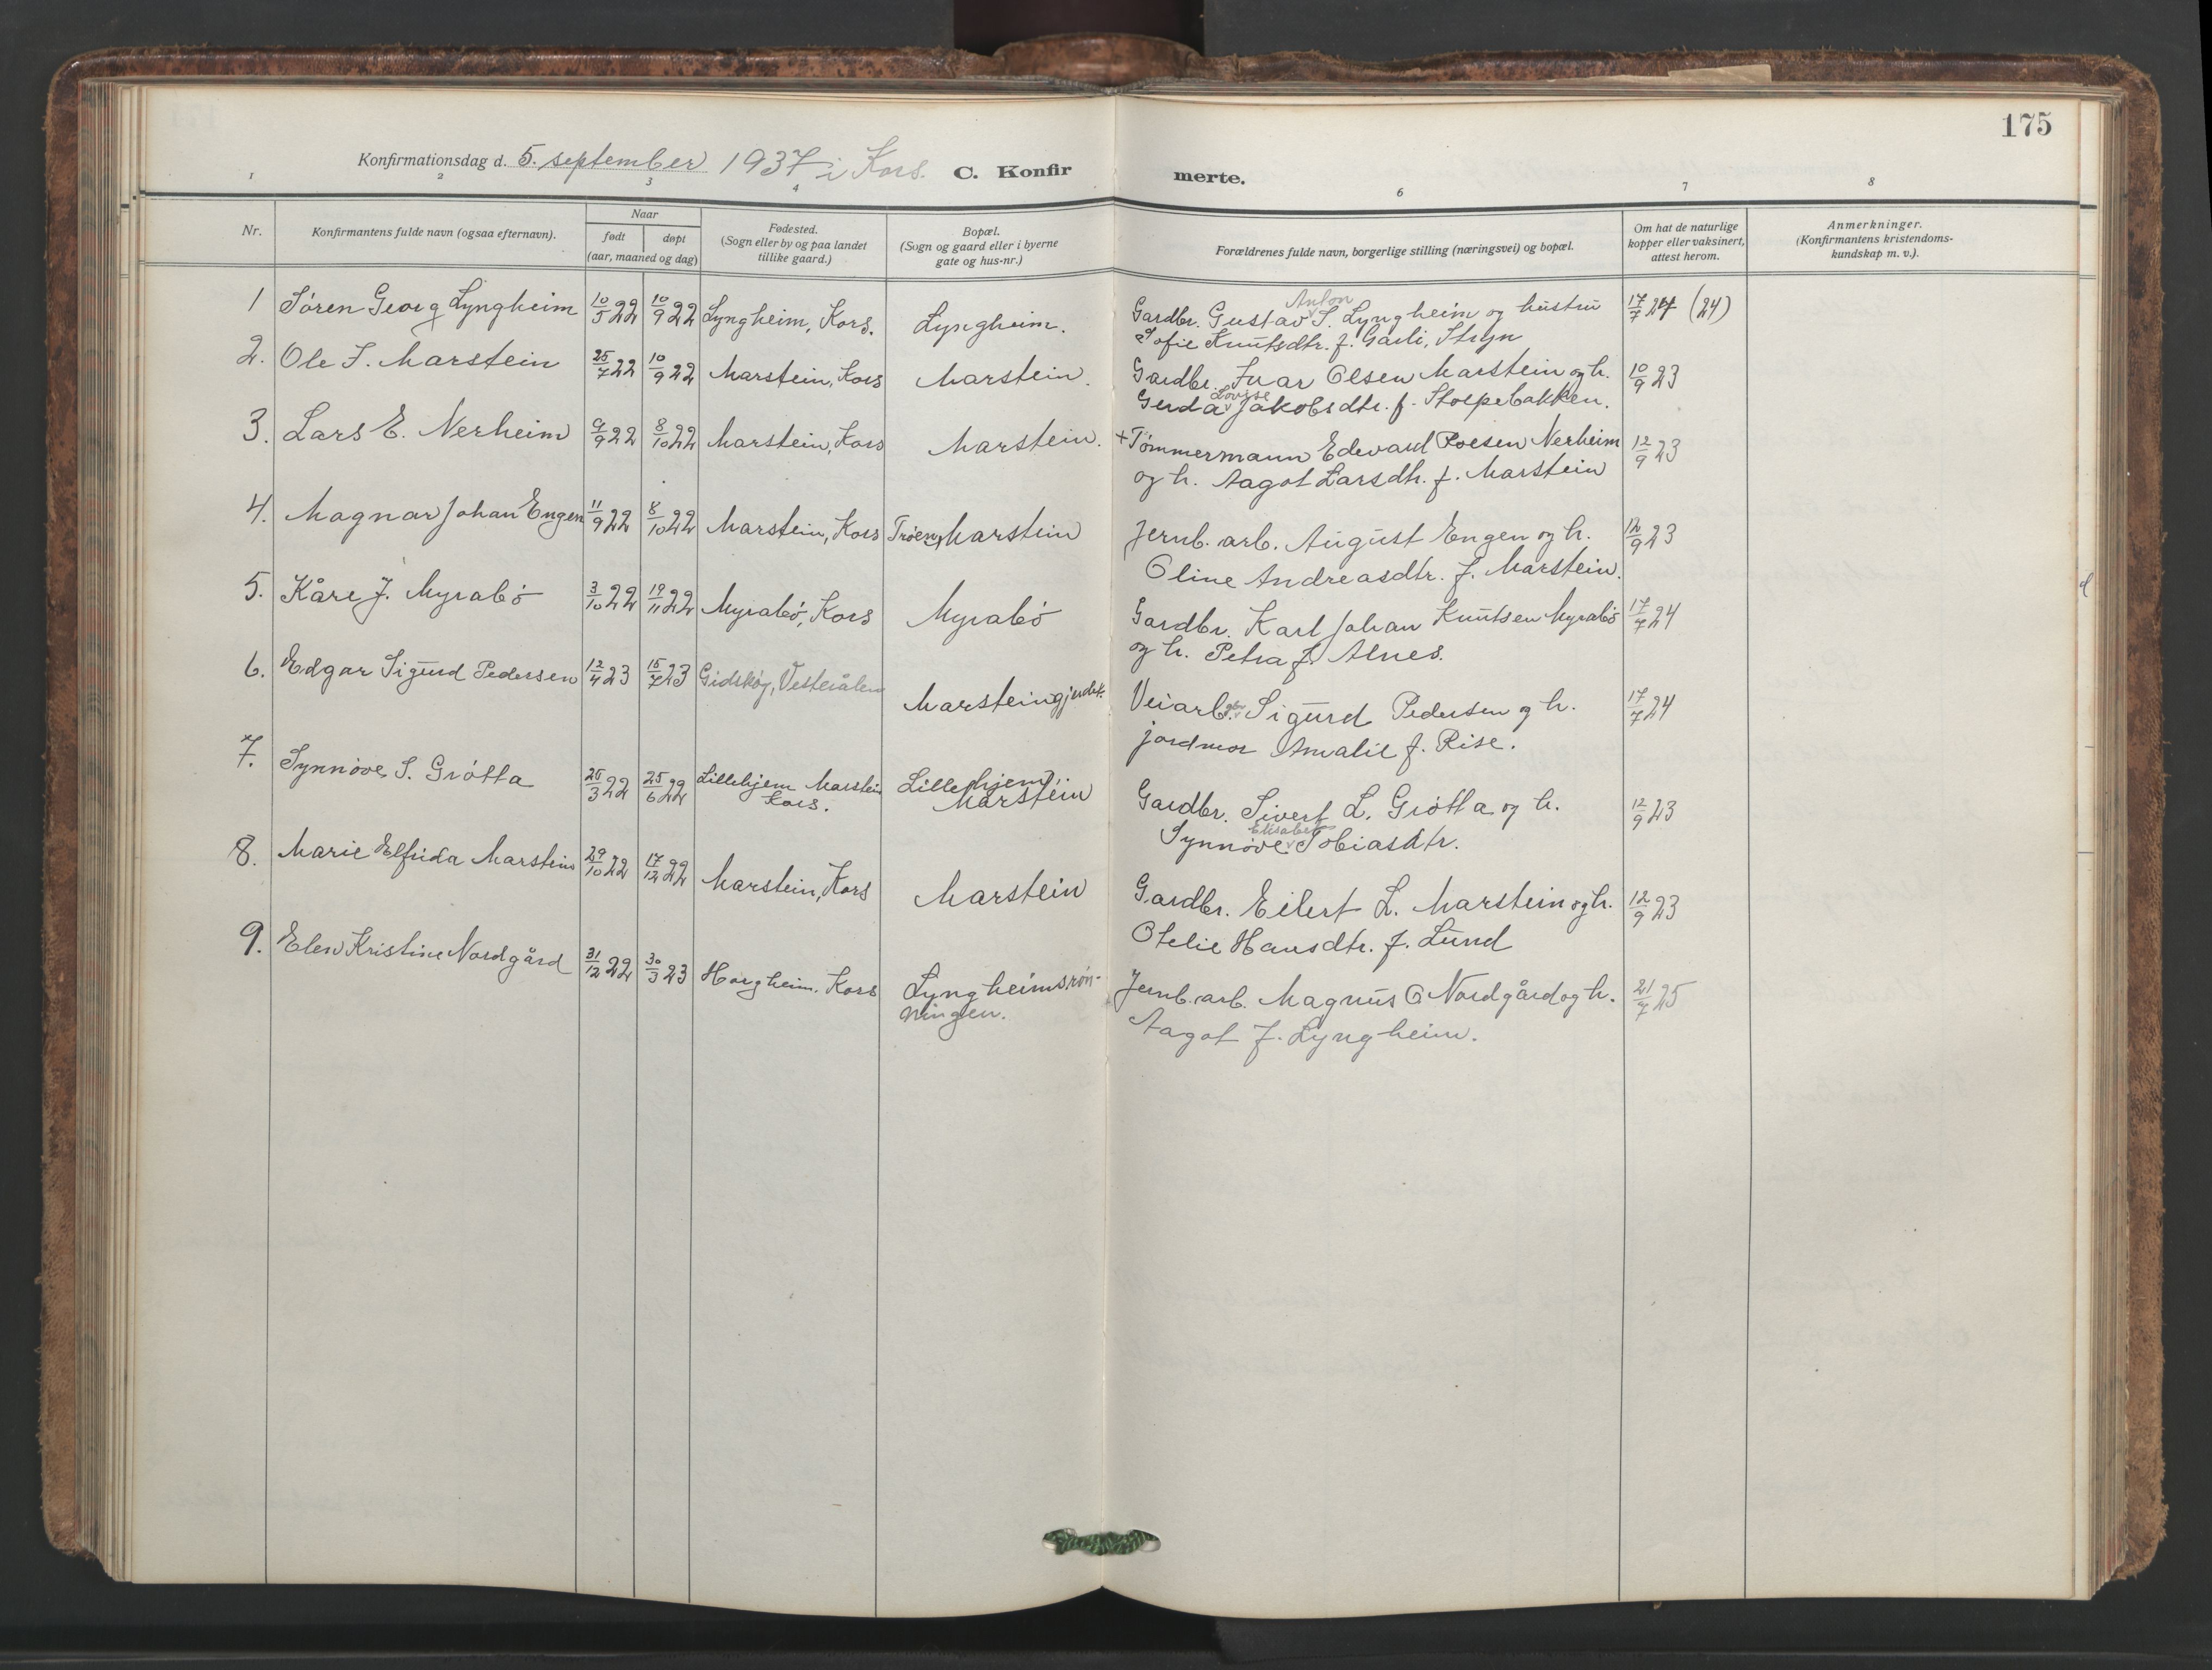 175
Konfirmationsdag d. 5. september 1937 i Kors. C. Konfir merte.
1 2 3 4 6 7 8
Nr.
Konfirmantens fulde navn (ogsaa efternavn).
Naar
født døpt
(aar, maaned og dag)
Fødested.
(Sogn eller by og paa landet
tillike gaard.)
Bopæl.
(Sogn og gaard eller i byerne
gate og hus-nr.)
Forældrenes fulde navn, borgerlige stilling (næringsvei) og bopæl.
Om hat de naturlige
kopper eller vaksinert,
attest herom.
Anmerkninger.
(Konfirmantens kristendoms-
kundskap m. v.).
1 Sören Georg Lyngheim 10/5 22 10/9 22 Lyngheim, Kors. Lyngheim. Gardbr. Gustav Anton S. Lyngheim og hustru 17/7 24 (24)
Sofie Knutsdtr. f. Garli, Stryn
2. Ole I. Marstein 25/7 22 10/9 22 Marstein, Kors Marstein. Gardbr. Ivar Olsen Marstein og h. 10/9 23
Gerda Lovise Jakobsdtr. f. Stolpebakken.
3. Lars E. Nerheim 9/9 22 8/10 22 Marstein, Kors Marstein. + Tömmermann Edevard Nerheim 12/9 23
og h. Aagot Larsdtr. f. Marstein
4. Magnar Johan Engen 11/9 22 8/10 22 Marstein, Kors Tröen, Marstein Jernb. arb. August Engen og h. 12/9 23
Oline Andreasdtr. f. Marstein.
5. Kåre J. Myrabö 3/10 22 19/11 22 Myrabö, Kors Myrabö Gardbr. Karl Johan Knutsen Myrabö 17/7 24
og h. Petra f. Alnes.
6. Edgar Sigurd Pedersen 12/4 23 15/7 23 Gidskøy, Vesterålen Marsteingjerdet. Veiarb. gbr. Sigurd Pedersen og h. 17/7 24
jordmor Amalie f. Rise.
7. Synnöve S. Grötta 26/3 22 25/6 22 Lillehjem Marstein Kors. Lillehjem, Marstein Gardbr. Sivert L. Grötta og h. 12/9 23
Synnöve Elisabet Tobiasdtr.
8. Marie Elfrida Marstein 29/10 22 17/12 22 Marstein, Kors Marstein Gardbr. Eilert L. Marstein og h. 12/9 23
Otelie Hansdtr. f. Lund
9. Elen Kristine Nordgård 31/12 22 30/3 23 Horgheim. Kors Lyngheimsrön-
ningen. Jernb. arb. Magnus O Nordgård og h. 21/7 25
Aagot f. Lyngheim.